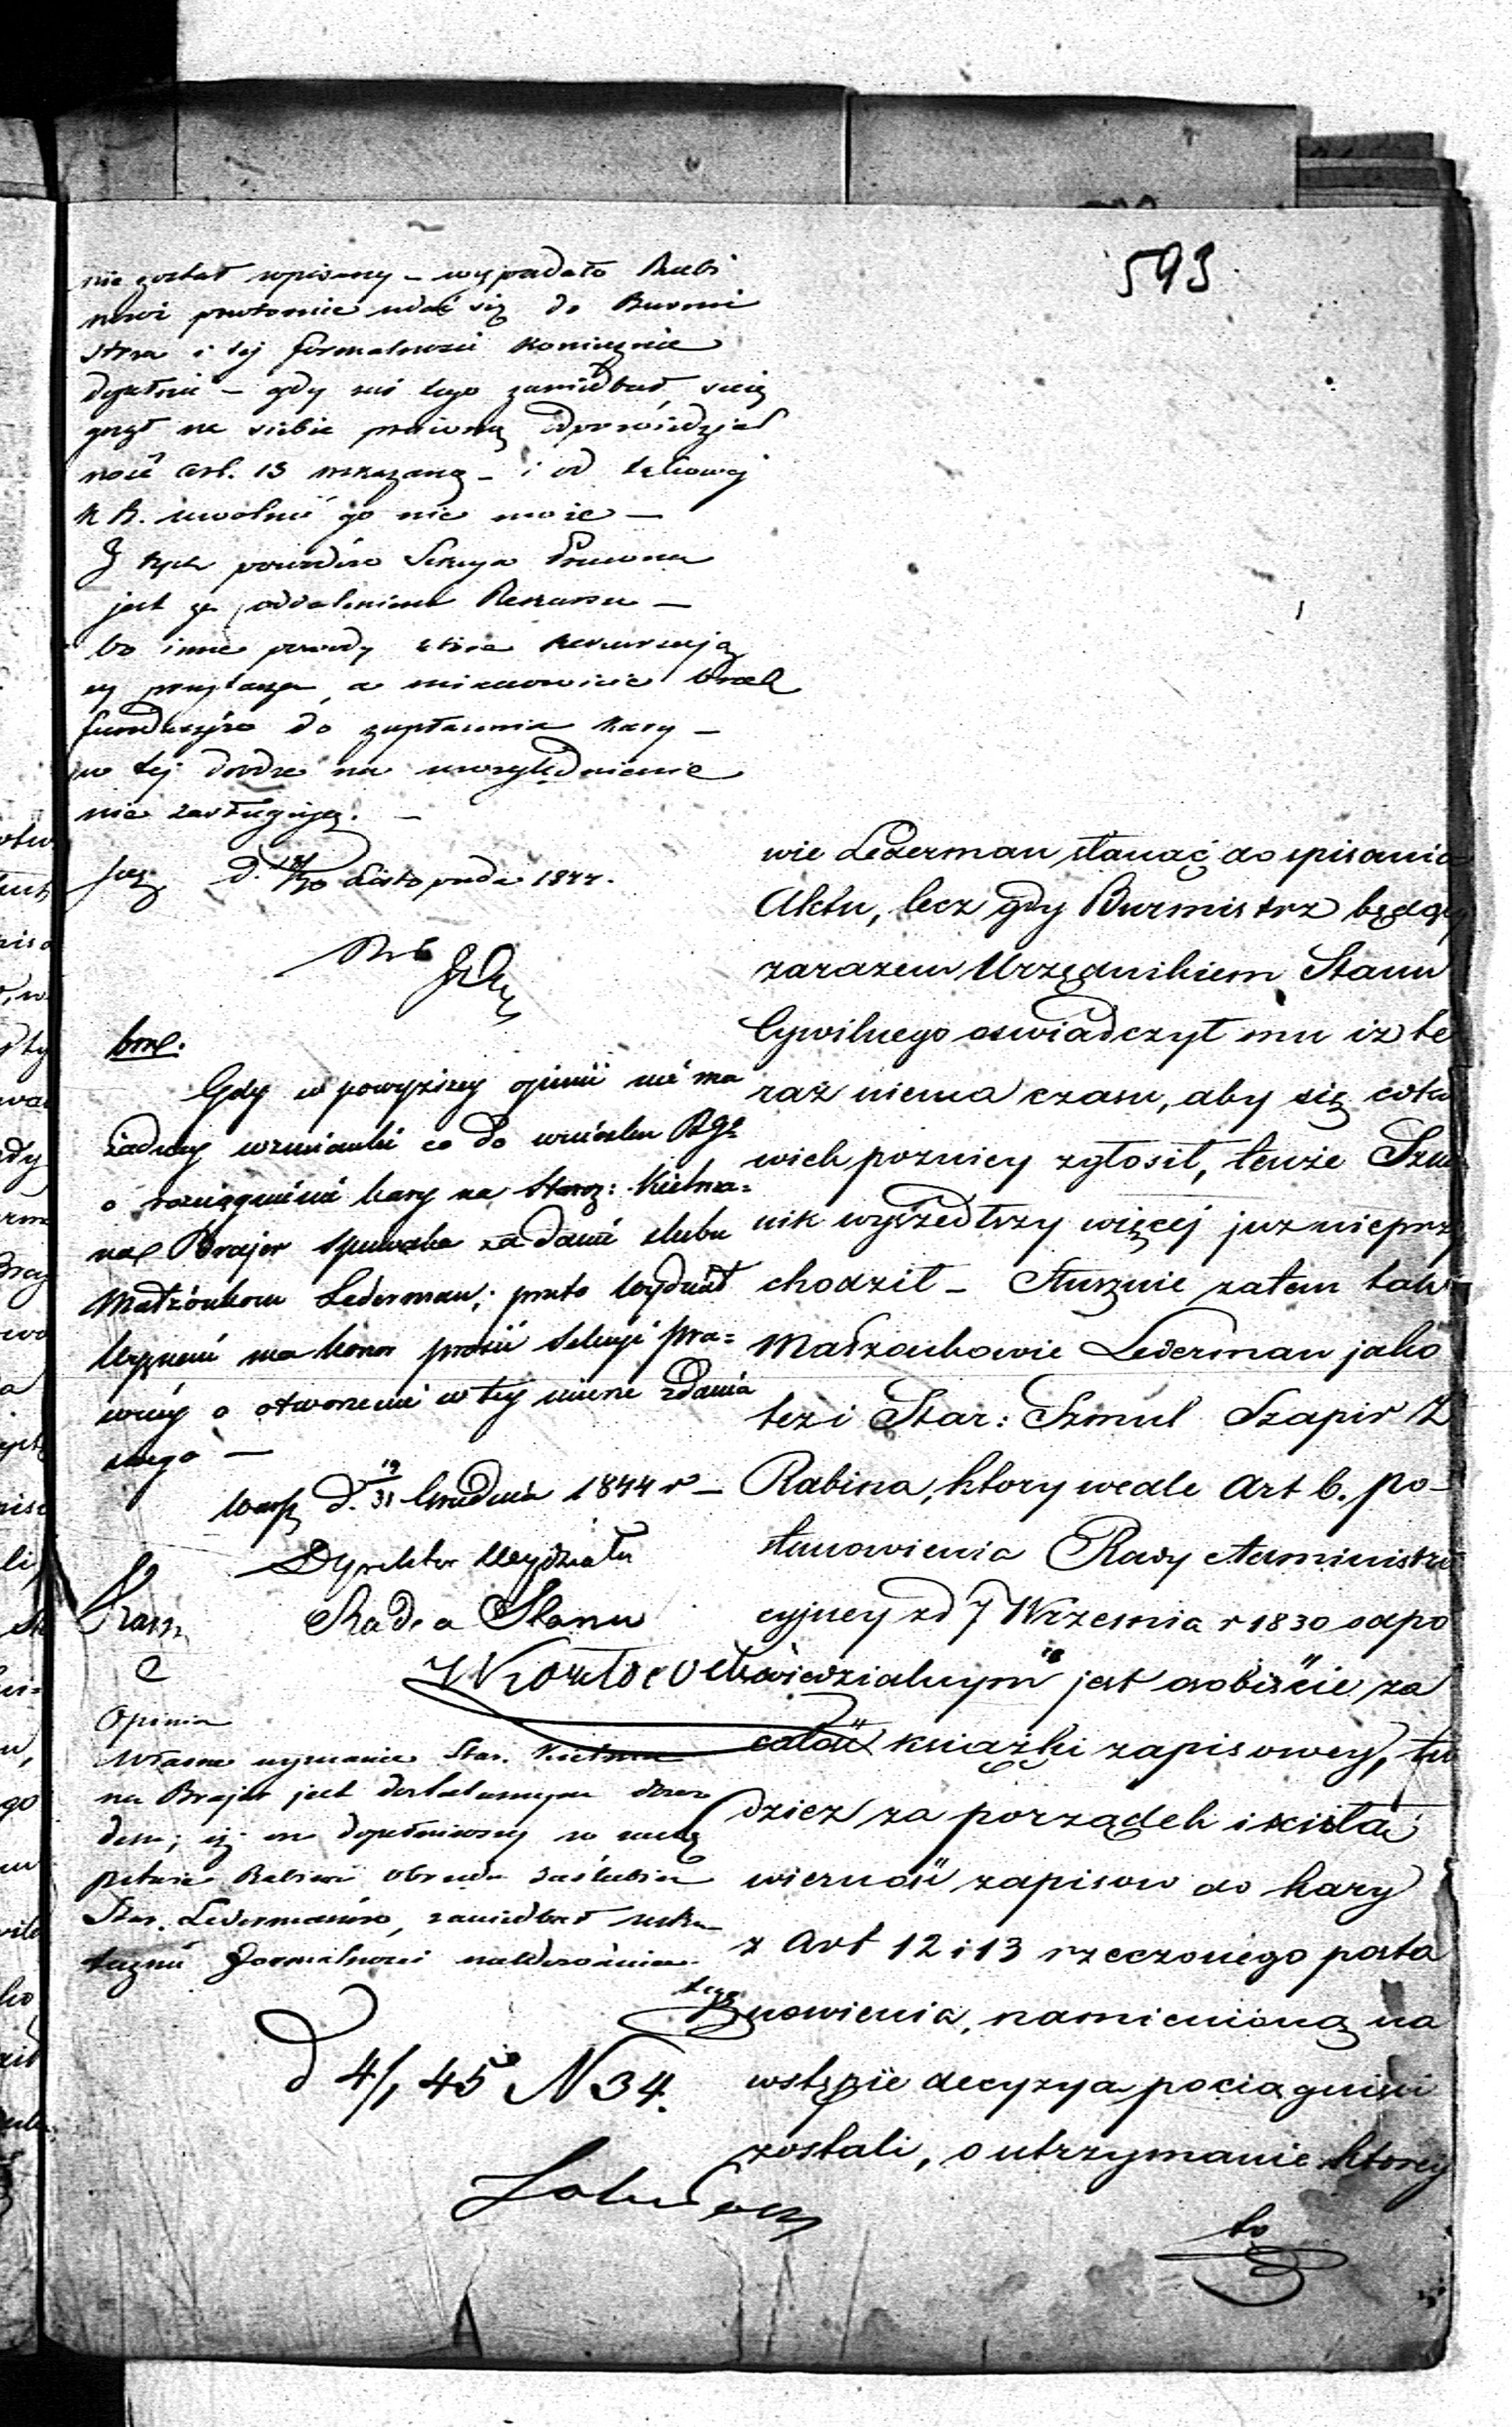 593
nie został wpisany – wypadało Rabi
nowi powtornie udać się do Burmi
strza i tej formalnosci koniecznie
dopełnić – gdy zaś tego zaniedbał, ścią
gnął na siebie prawną odpowiedzial
ność Art. 13 wskazaną – i od takowej
K R. uwolnić go nie może –
Z tych powodów Sekcya Prawna
jest za oddaleniem Rekursu –
bo inne powody które Rekurrują
cy przytacza, a mianowicie brak
funduszów do zapłacenia kary –
w tej drodze na uwzględnienie
nie zasługują. –
d. 18/30 Listopada 1844.
Gdy w powyższey opinii nie ma
żadney wzmianki co do wniosku RG
o rozciągnienie kary na Staroz: Kielma=
na Brajer Spiewaka za danie slubu
Małżonkom Lederman; przeto Wydział
Wyznań ma honor prosić Sekcyi Pra=
wney o otworzenie w tey mierze zdania
swego –
Warsz d. 19/31 Grudnia 1844 r –
Dyrektor Wydziału
Radca Stanu
Opinia
Własne wyznanie Star. Kielma
na Brajer jest dostatecznym dowo
dem, iż on dopełniwszy w zastę
pstwie Rabina obrzędu zaślubin
Star. Ledermanów, zaniedbał usku
tecznić formalności
d 4/1 45 N 34.
wie Lederman stanąć do spisania
Aktu, lecz gdy Burmistrz będąc
zarazem Urzędnikiem Stanu
Cywilnego oswiadczył mu iz te
raz niema czasu, aby się
pozniey zgłosił, tenże Szmu
nik wyszedłszy więcej juz nieprzy
chodził – Słusznie zatem tak
Małzonkowie Lederman jako
tez i Star: Szmul Szapir Z
Rabina, ktory wedle Art 6. po–
stanowienia Rady Administra
cyjney z d 7 Wrzesnia r 1830 odpo
wiedzialnym jest osobiście za
całość ksiażki zapisowey, tu
dziez za porządek i scisła
wierność zapisow do kary
z Art 12 i 13 rzeczonego posta
nowienia, namienioną na
wstępie decyzya pociagnieni
zostali, o utrzymanie ktorey